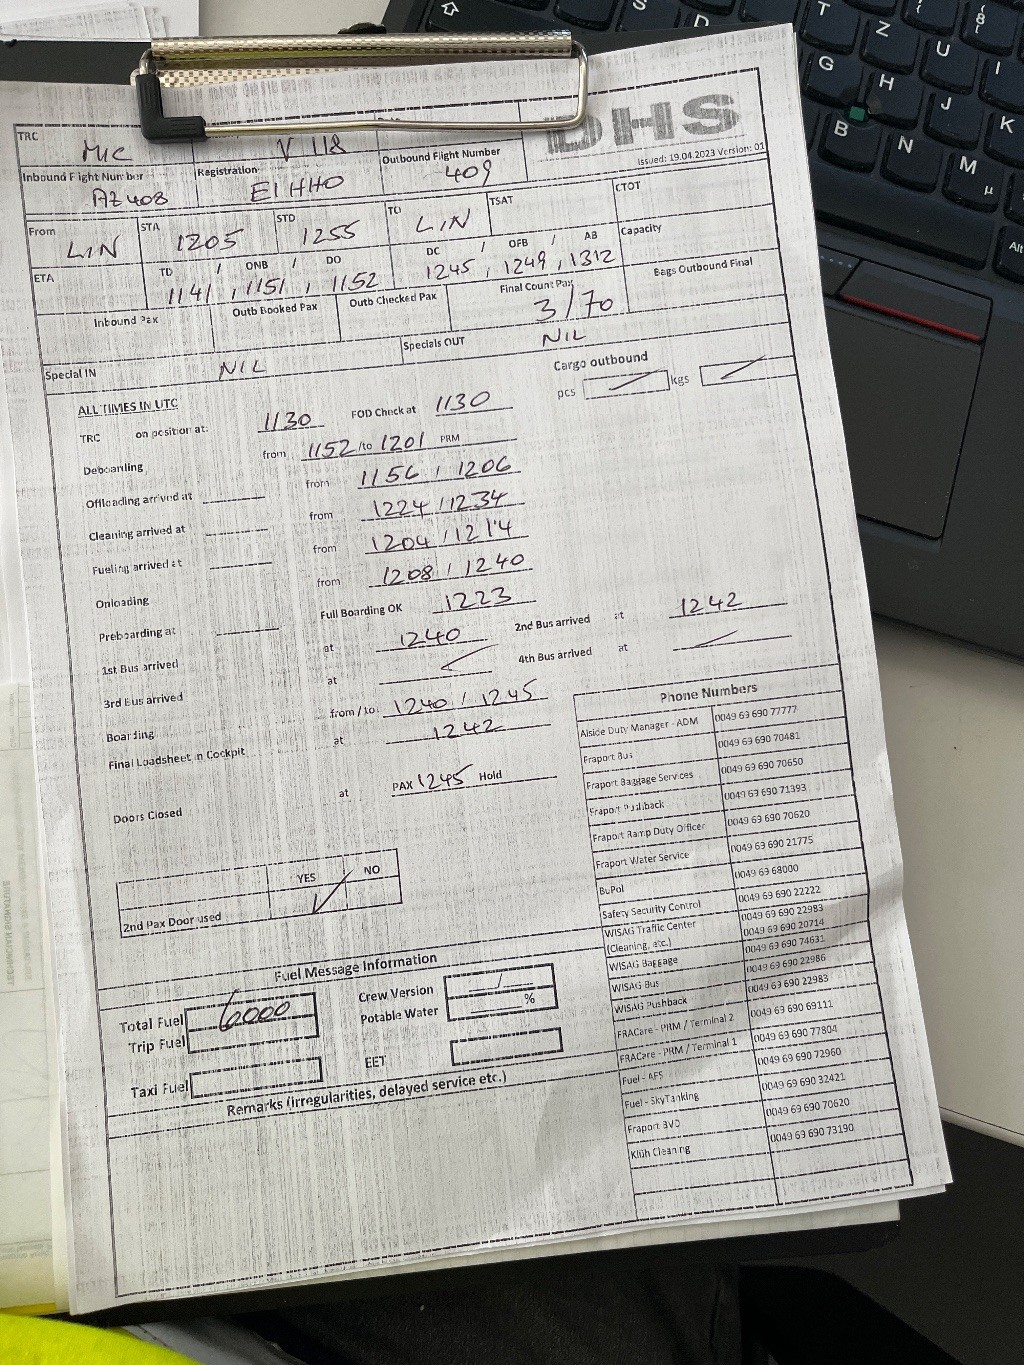 TRC MIC V 118 DHS
Inbound Flight Number AZ408 Registration EI HHO Outbound Flight Number 409 Issued: 19.04.2023 Version: 01
From LIN STA 1205 STD 1255 TO LIN TSAT CTOT
ETA TD / ONB / DO 1141 / 1151 / 1152 DC / OFB / AB 1245 / 1249 / 1312 Capacity
Inbound Pax Outb Booked Pax Outb Checked Pax Final Count Pax 3/70 Bags Outbound Final
Special IN NIL Specials OUT NIL
Cargo outbound
pcs kgs
ALL TIMES IN UTC
TRC on position at: 1130 FOD Check at 1130
Deboarding from 1152 /to 1201 PRM
Offloading arrived at from 1156 / 1206
Cleaning arrived at from 1224 / 1234
Fueling arrived at from 1204 / 1214
Onloading from 1208 / 1240
Preboarding at Full Boarding OK 1223
1st Bus arrived at 1240 2nd Bus arrived at 1242
3rd Bus arrived at 4th Bus arrived at
Boarding from / to 1240 / 1245
Final Loadsheet in Cockpit at 1242
Doors Closed at PAX 1245 Hold
YES NO
2nd Pax Door used
Phone Numbers
Airside Duty Manager - ADM 0049 69 690 77777
Fraport Bus 0049 69 690 70481
Fraport Baggage Services 0049 69 690 70650
Fraport Pushback 0049 69 690 71393
Fraport Ramp Duty Officer 0049 69 690 70620
Fraport Water Service 0049 69 690 21775
BuPol 0049 69 68000
Safety Security Control 0049 69 690 22222
WISAG Traffic Center 0049 69 690 22983
(Cleaning, etc.) 0049 69 690 20714
WISAG Baggage 0049 69 690 74631
WISAG Bus 0049 69 690 22986
WISAG Pushback 0049 69 690 22983
FRACare - PRM / Terminal 2 0049 69 690 69111
FRACare - PRM / Terminal 1 0049 69 690 77804
Fuel - AFS 0049 69 690 72960
Fuel - SkyTanking 0049 69 690 32421
Fraport BVD 0049 69 690 70620
Klüh Cleaning 0049 69 690 73190
Fuel Message Information
Total Fuel 6000 Crew Version /
Trip Fuel Potable Water %
Taxi Fuel EET
Remarks (irregularities, delayed service etc.)
T Z U I
G H J K
B N M µ
Alt